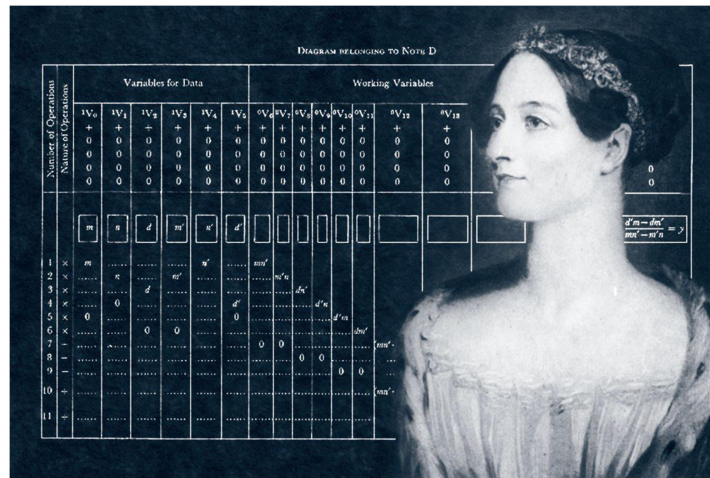 DIAGRAM BELONGING TO NOTE D
Number of Operations
Nature of Operations
Variables for Data
Working Variables
¹V₀ ¹V₁ ¹V₂ ¹V₃ ¹V₄ ¹V₅ ⁰V₆ ⁰V₇ ⁰V₈ ⁰V₉ ⁰V₁₀ ⁰V₁₁ ⁰V₁₂ ⁰V₁₃
+ + + + + + + + + + + + + +
0 0 0 0 0 0 0 0 0 0 0 0 0 0
0 0 0 0 0 0 0 0 0 0 0 0 0 0
0 0 0 0 0 0 0 0 0 0 0 0 0 0 0
0 0 0 0 0 0 0 0 0 0 0 0 0 0 0
m n d m′ n′ d′
d′m − dm′
mn′ − m′n = y
1 × m ..... ..... ..... n′ ..... mn′
2 × ..... n ..... m′ ..... ..... ..... m′n
3 × ..... ..... d ..... ..... ..... ..... ..... dn′
4 × ..... 0 ..... ..... ..... d′ ..... ..... ..... d′n
5 × 0 ..... ..... ..... ..... 0 ..... ..... ..... ..... d′m
6 × ..... ..... 0 0 ..... ..... ..... ..... ..... ..... ..... dm′
7 − ..... ..... ..... ..... ..... ..... 0 0 ..... ..... ..... ..... (mn′-
8 − ..... ..... ..... ..... ..... ..... ..... ..... 0 0 ..... .....
9 − ..... ..... ..... ..... ..... ..... ..... ..... ..... ..... 0 0
10 ÷ ..... ..... ..... ..... ..... ..... ..... ..... ..... ..... ..... ..... (mn′-
11 ÷ ..... ..... ..... ..... ..... ..... ..... ..... ..... ..... ..... .....